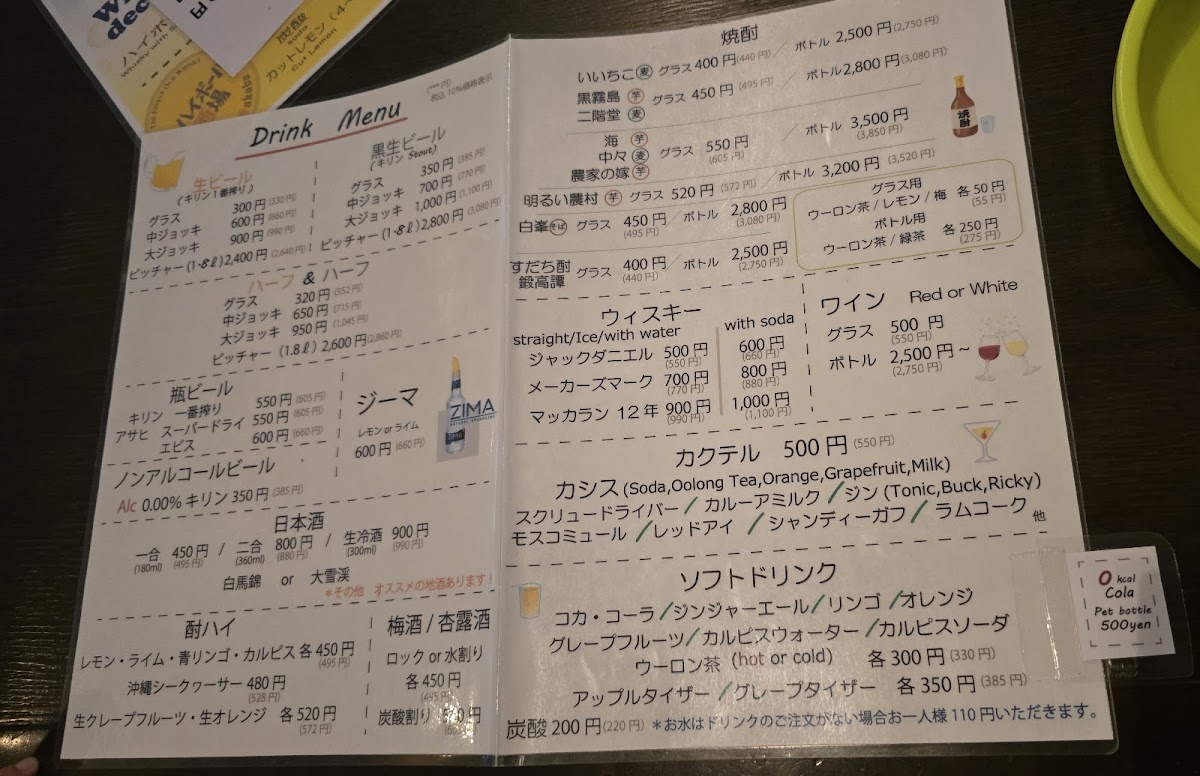 ハイボール
Whisky with S
炭酸
soda
カットレモン
Cut Lemon
(*** 円)
税込 10%価格表示
Drink Menu
生ビール
(キリン1番搾り)
グラス 300円 (330円)
中ジョッキ 600円 (660円)
大ジョッキ 900円 (990円)
ピッチャー(1・8ℓ) 2,400円 (2,640円)
黒生ビール
(キリン Stout)
グラス 350円 (385円)
中ジョッキ 700円 (770円)
大ジョッキ 1,000円 (1,100円)
ピッチャー(1・8ℓ) 2,800円 (3,080円)
ハーフ & ハーフ
グラス 320円 (352円)
中ジョッキ 650円 (715円)
大ジョッキ 950円 (1,045円)
ピッチャー (1.8ℓ) 2,600円 (2,860円)
瓶ビール
キリン 一番搾り 550円 (605円)
アサヒ スーパードライ 550円 (605円)
エビス 600円 (660円)
ジーマ
レモン or ライム
600円 (660円)
ZIMA
ノンアルコールビール
Alc 0.00% キリン 350円 (385円)
日本酒
一合 450円 / 二合 800円 / 生冷酒 900円
(180ml) (495円) (360ml) (880円) (300ml) (990円)
白馬錦 or 大雪渓
*その他 オススメの地酒あります!
酎ハイ
レモン・ライム・青リンゴ・カルピス 各450円
(495円)
沖縄シークヮーサー 480円
(528円)
生グレープフルーツ・生オレンジ 各520円
(572円)
梅酒 / 杏露酒
ロック or 水割り
各450円
(495円)
炭酸割り
焼酎
いいちこ 麦 グラス 400円 (440円) / ボトル 2,500円 (2,750円)
黒霧島 芋 グラス 450円 (495円) / ボトル 2,800円 (3,080円)
二階堂 麦
海 芋
中々 麦 グラス 550円 / ボトル 3,500円
(605円) (3,850円)
農家の嫁 芋
明るい農村 芋 グラス 520円 (572円) / ボトル 3,200円 (3,520円)
白峯 そば グラス 450円 / ボトル 2,800円
(495円) (3,080円)
すだち酎 グラス 400円 / ボトル 2,500円
鍛高譚 (440円) (2,750円)
焼酎
グラス用
ウーロン茶 / レモン / 梅 各50円
(55円)
ボトル用
ウーロン茶 / 緑茶 各250円
(275円)
ウィスキー
straight/Ice/with water with soda
ジャックダニエル 500円 600円
(550円) (660円)
メーカーズマーク 700円 800円
(770円) (880円)
マッカラン 12年 900円 1,000円
(990円) (1,100円)
ワイン Red or White
グラス 500円
(550円)
ボトル 2,500円~
(2,750円)
カクテル 500円 (550円)
カシス (Soda,Oolong Tea,Orange,Grapefruit,Milk)
スクリュードライバー / カルーアミルク / ジン (Tonic,Buck,Ricky)
モスコミュール / レッドアイ / シャンディーガフ / ラムコーク 他
ソフトドリンク
コカ・コーラ / ジンジャーエール / リンゴ / オレンジ
グレープフルーツ / カルピスウォーター / カルピスソーダ
ウーロン茶 (hot or cold) 各300円 (330円)
アップルタイザー / グレープタイザー 各350円 (385円)
炭酸 200円 (220円) *お水はドリンクのご注文がない場合お一人様110円いただきます。
0 kcal
Cola
Pet bottle
500yen